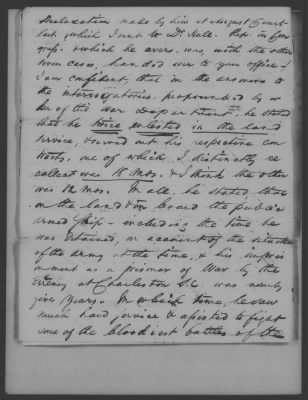 Declaration made by him at August Court
last, which I sent to Dr Hall. Rep. in Con
gress. & which he avers, was, with the other
seven cases, handed over to your office. &
I am confident, that in the answers to
the interrogatories, propounded by or
der of the War department, he stated
that he twice enlisted in the land
service, & served out his respective con
tracts, one of which I distinctly re
collect was 18 Mos. & I think the other
was 12 Mos. In all he stated, that
on the land & on board the public
armed ship - including the time he
was detained, on account of the situation
of the Army at the time, & his impris
onment as a prisoner of War by the
Enemy at Charleston S.C. was nearly
five years. In which time, he saw
much hard service & assisted to fight
some of the bloodiest battles of the